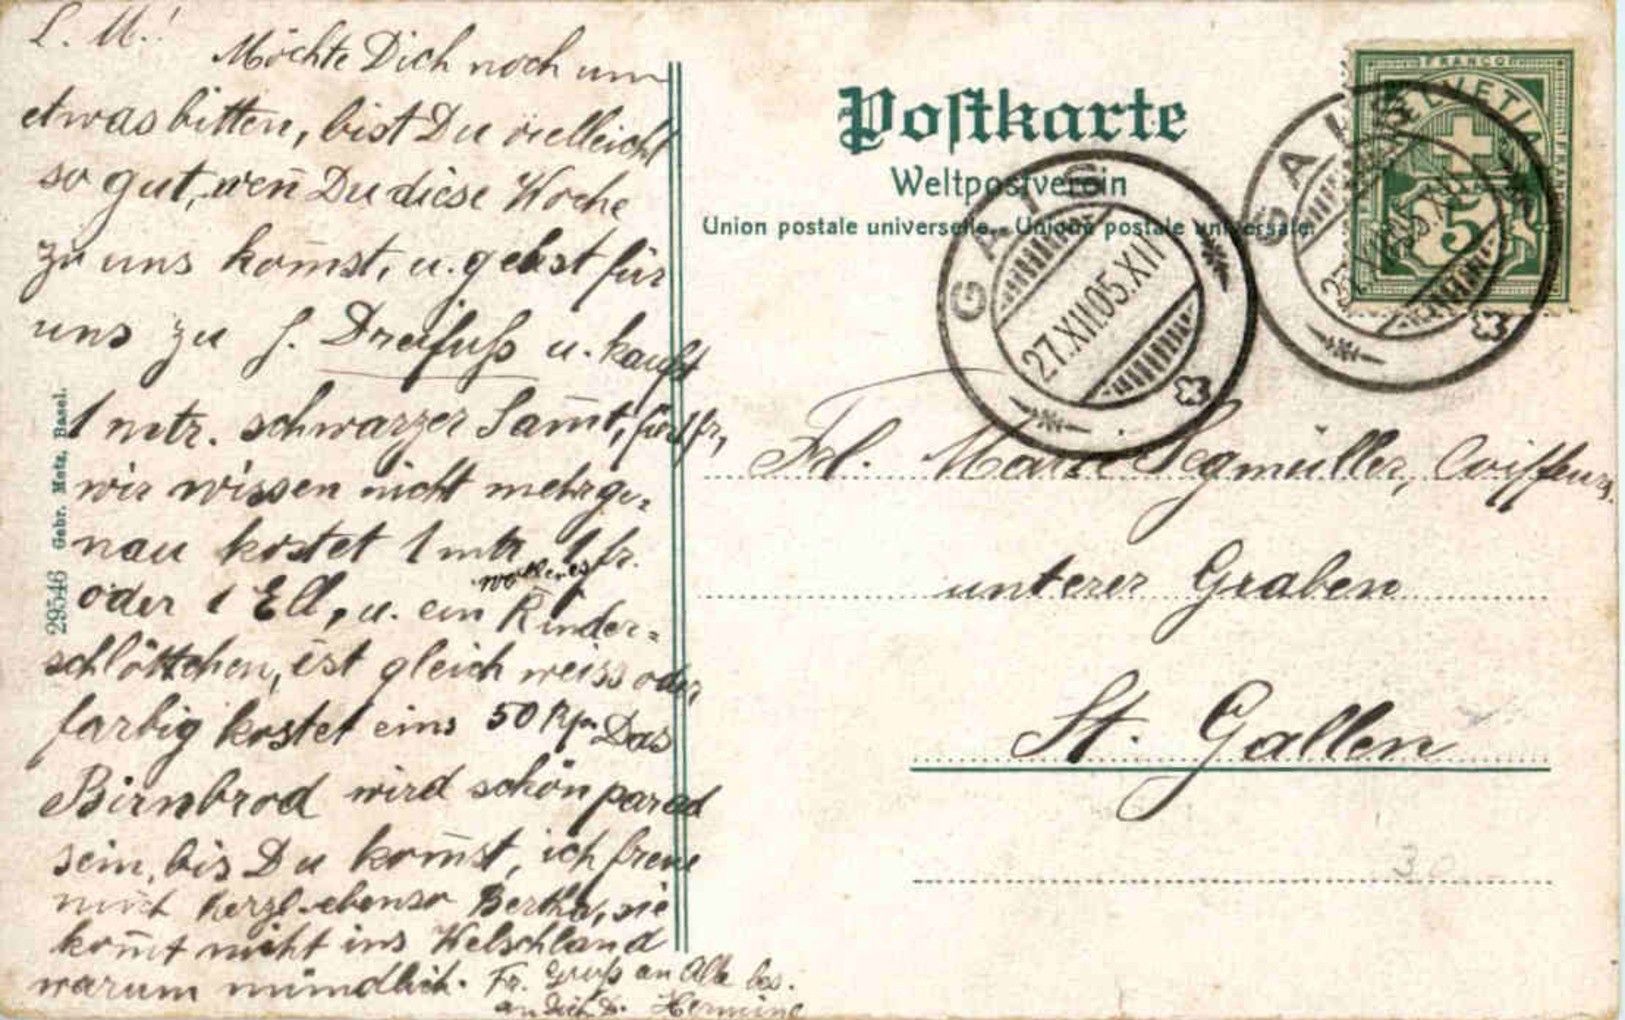 L. M.!
Möchte Dich noch um
etwas bitten, bist Du vielleicht
so gut, wen̄ Du diese Woche
zu uns kom̄st, u. gehst für
uns zu J. Dreifuß u. kaufst
1 mtr. schwarzer Sam̄t, für 1 fr,
wir wissen nicht mehr ge=
nau kostet 1 mtr 1 fr.
oder 1 Ell, u. ein wollenes Kinder=
schlöttchen, ist gleich weiss oder
farbig kostet eins 50 Rp. Das
Birnbrod wird schön parad
sein, bis Du kom̄st, ich freue
mich herzl. ebenso Bertha, sie
kom̄t nicht ins Welschland
warum mündlich. Fr. Gruß an Alle bes.
an Dich D. Hermine
29546 Gebr. Metz, Basel.
Postkarte
Weltpostverein
Union postale universelle. Unione postale universale.
GAIS
27.XII.05.XII
GAIS
FRANCO
HELVETIA
FRANCO
5
Frl. Marie Segmüller, Coiffeurs.
unterer Graben
St. Gallen
30